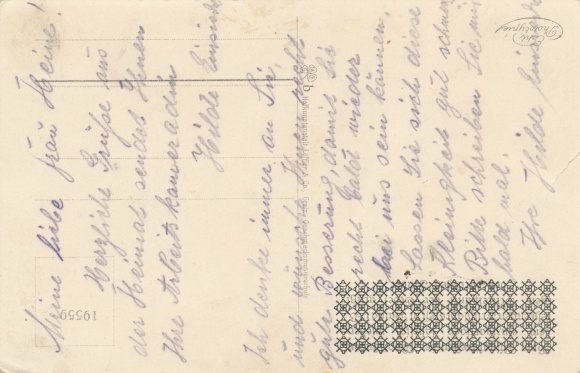 Meine liebe Frau Heine!
Herzliche Grüße aus
der Heimat sendet Ihnen
Ihre Arbeitskameradin
Hilde
Ich denke immer an Sie,
und wünsche Ihnen recht
gute Besserung, damit Sie
recht bald wieder
bei uns sein können.
Lassen Sie sich diese
Kleinigkeit gut
Bitte schreiben Sie mir
bald mal.
Ihre Hilde
19559
Echt
Photolypie